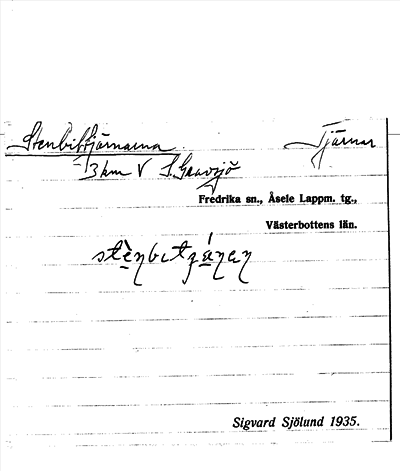 Stenbittjärnarna Tjärnar
3 km V S. Gravsjö
Fredrika sn., Åsele Lappm. tg.,
Västerbottens län.
Sigvard Sjölund 1935.